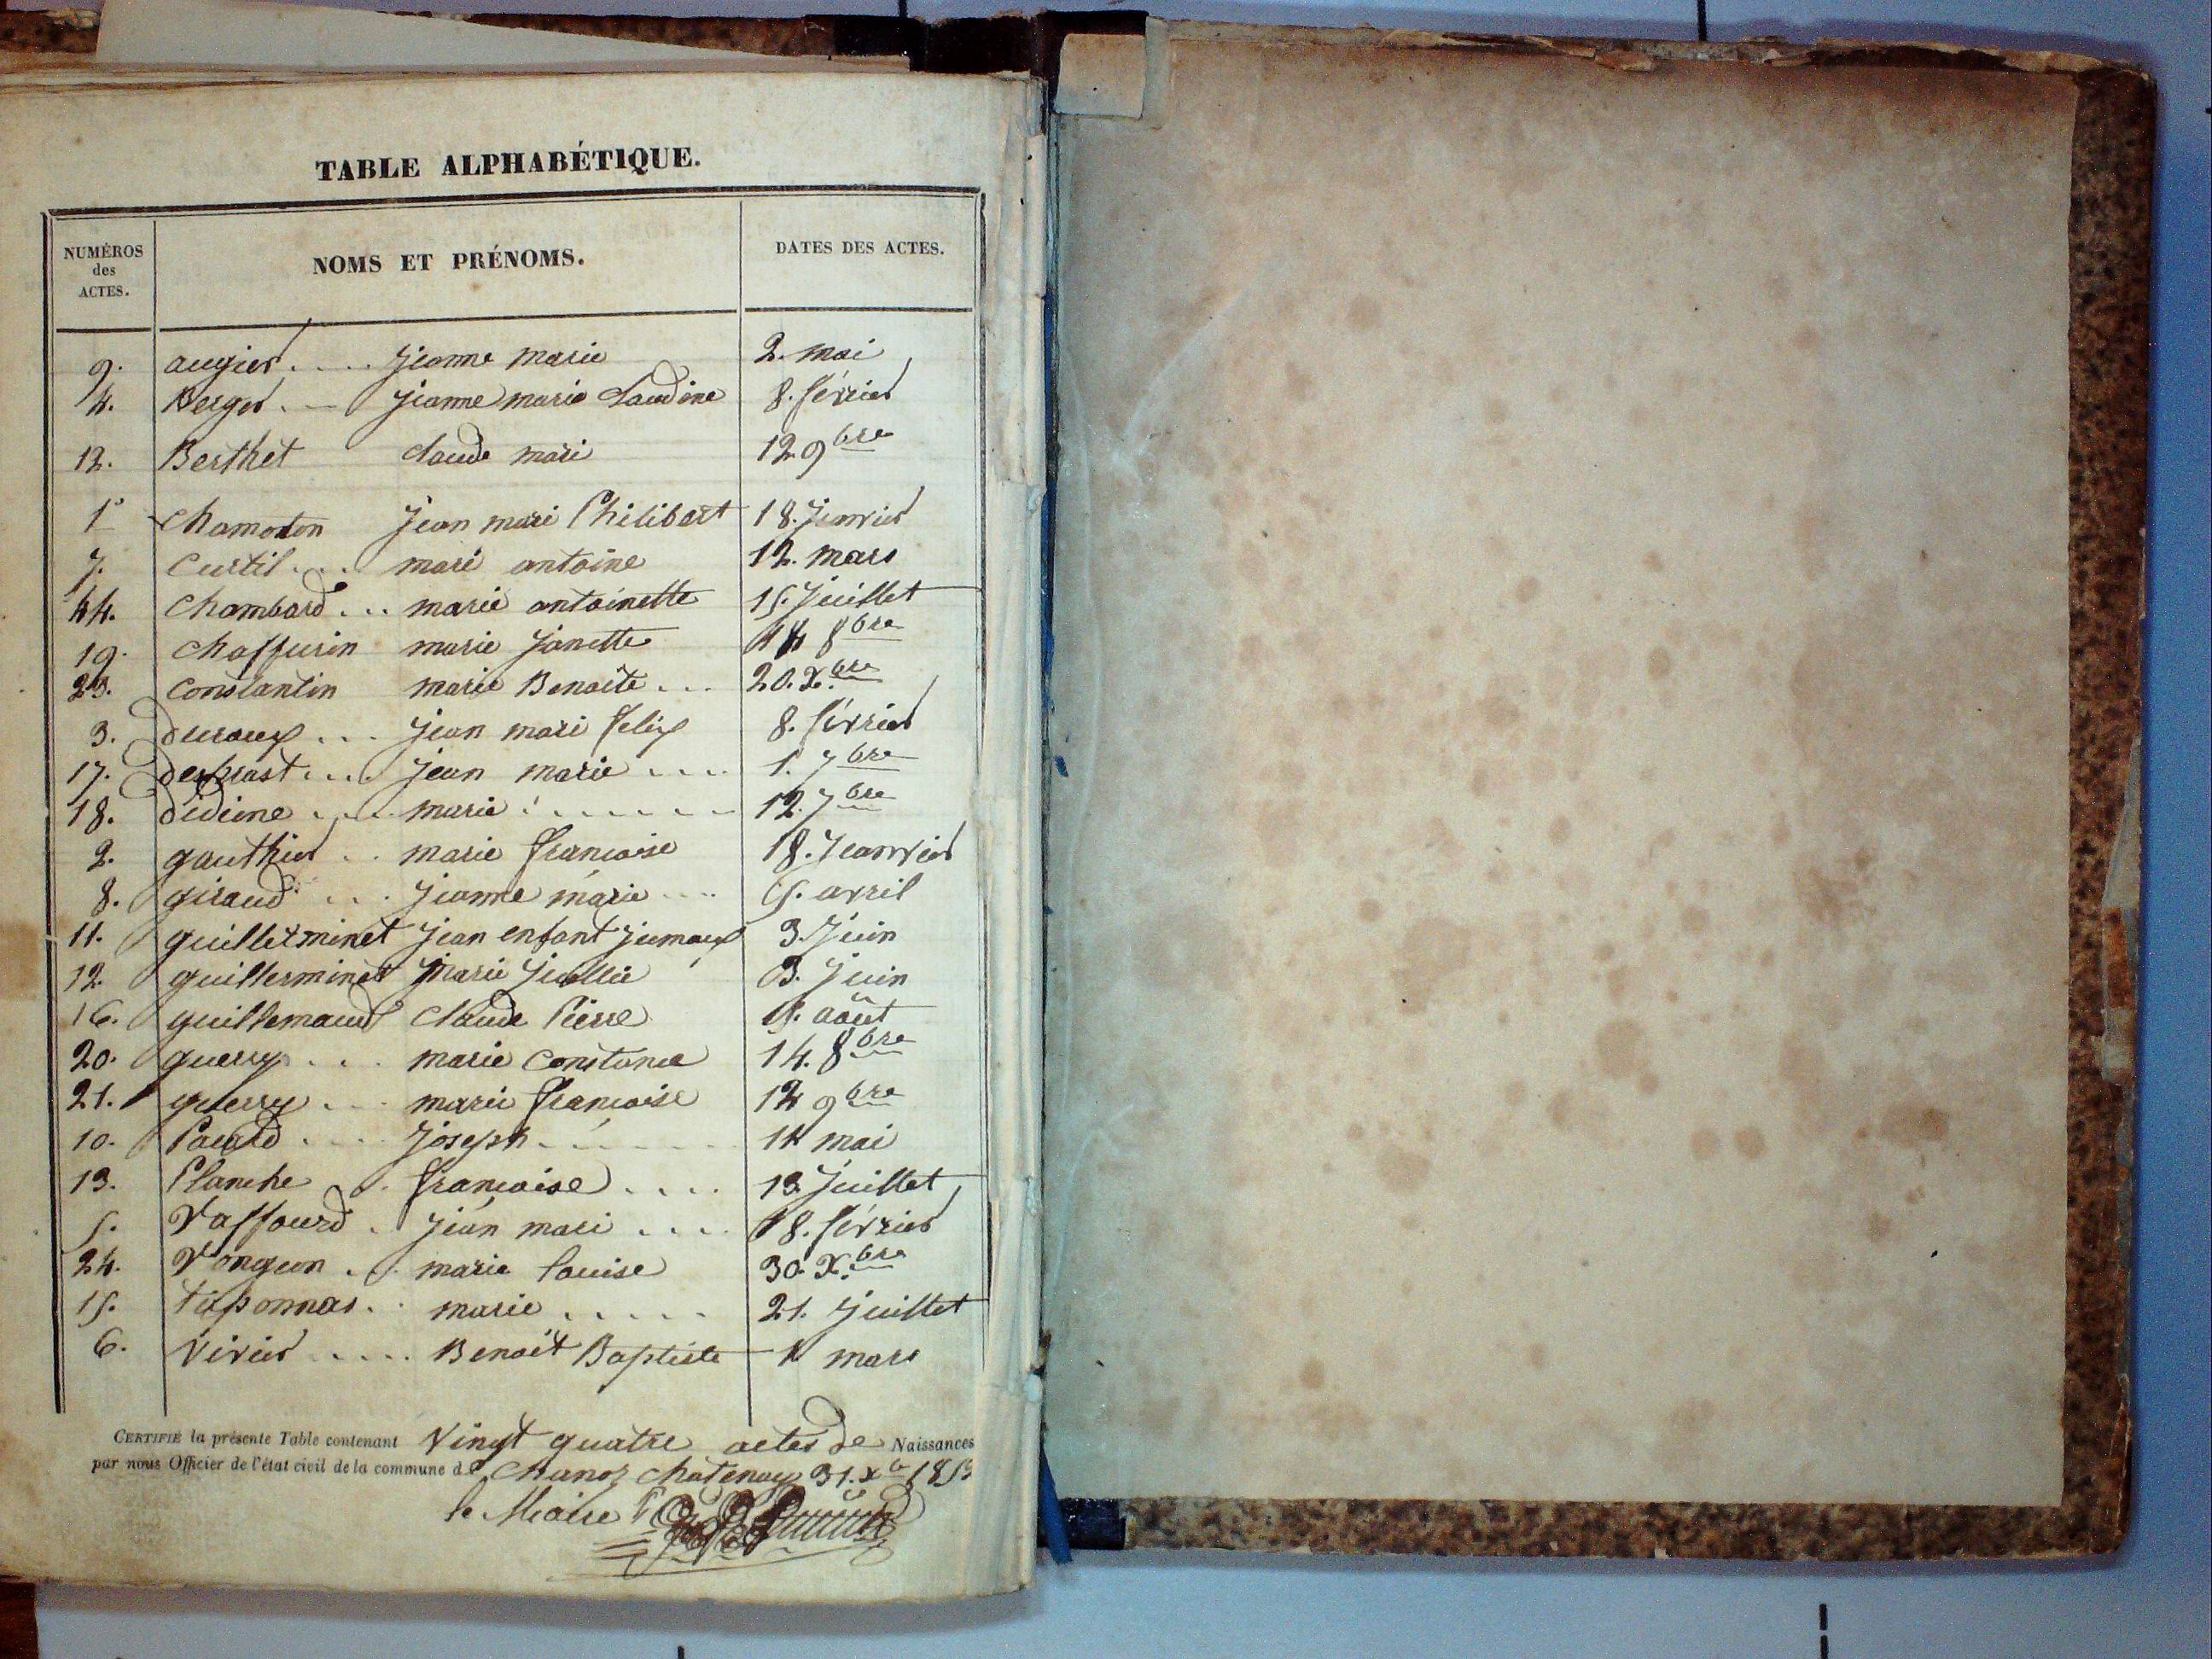 TABLE ALPHABÉTIQUE.
NUMÉROS des ACTES. NOMS ET PRÉNOMS. DATES DES ACTES.
9. augier ..... Jeanne marie 2. mai
4. Berger . — Jeanne marie Claudine 8. février
12. Berthet claude mari 12. 9bre
1° Chamoton Jean mari Philibert 18. Janvier
7. Curtil .... mari antoine 12. mars
14. Chambard ... marie antoinette 15. Juillet
19. Chaffurin marie Janette 8bre
23. Constantin marie Benoite ... 20. Xbre
3. Duroux ... Jean mari felix 8. février
17. .... Jean marie .... 1. 7bre
18. Didime ..... marie ....... 12. 7bre
2. gauthier .. marie francoise 18. Jeanvier
8. giraud ... Jeanne marie .... 5. avril
11. guillerminet Jean enfant Jumaux 3. Juin
12. guillerminet marie 3. Juin
16. guillemaud Claude Pierre août
20. guerry ... marie Constance 14. 8bre
21. guerry ... marie francoise 12 9bre
10. .... Joseph ...... mai
13. Planche .. francoise .... 13. Juillet
5. Vaffourd . Jean mari .... 18. février
24. Vongeon ... marie louise 30. Xbre
15. taponnas .. marie ..... 21. Juillet
6. Virier ..... Benoit Baptiste mars
CERTIFIÉ la présente Table contenant Vingt quatre actes de Naissances
par nous Officier de l'état civil de la commune de Chanoz Chatenay 31. Xb
le Maire